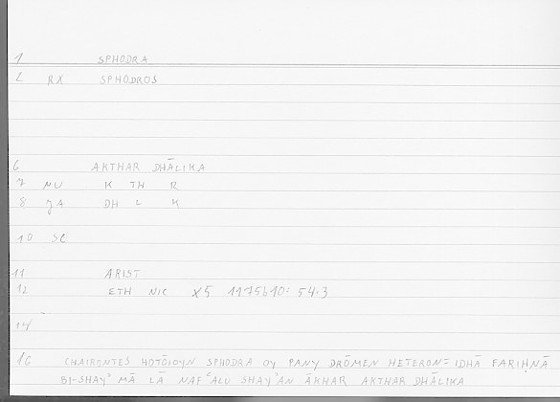 1 SPHODRA
2 RX SPHODROS
6 AKTHAR DHĀLIKA
7 MU K TH R
8 JA DH L K
10 SC
11 ARIST
12 ETH NIC X5 1175b10: 54.3
14
16 CHAIRONTES HOTŌIOYN SPHODRA OY PANY DRŌMEN HETERON = IDHĀ FARIḤNĀ
BI-SHAY' MĀ LĀ NAF'ALU SHAY'AN ĀKHAR AKTHAR DHĀLIKA